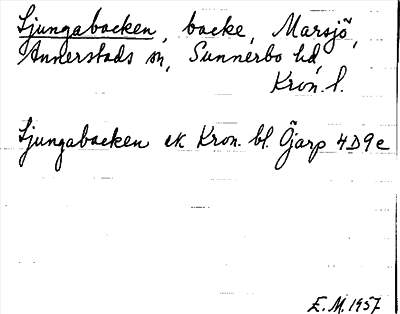 Ljungabacken, backe, Marsjö,
Annerstads sn, Sunnerbo hd,
Kron. l.
Ljungabacken ek Kron. bl. Öjarp 4D9e
E.M. 1957